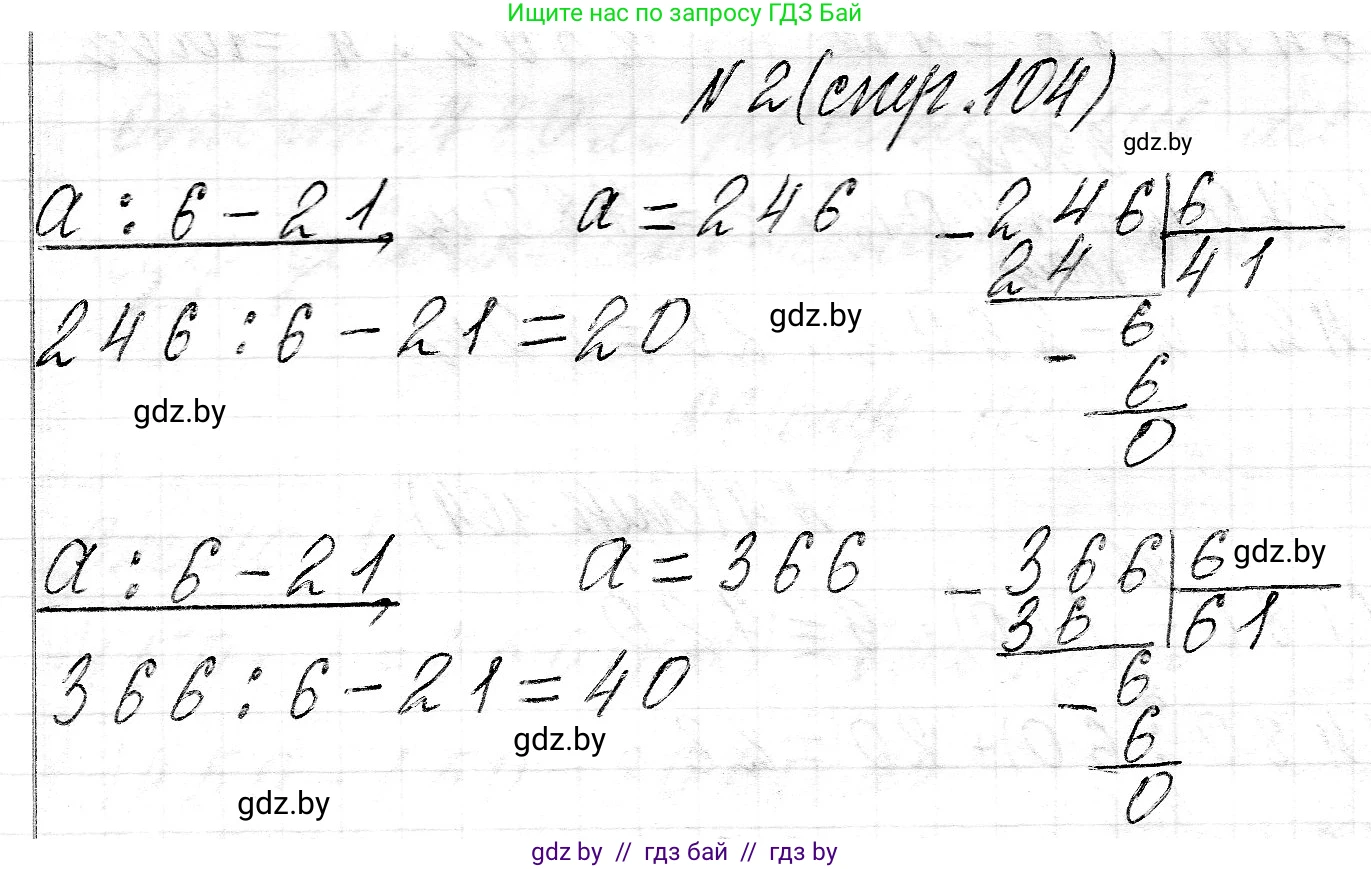 Ищите нас по запросу ГДЗ Бай
N 2 (стр. 104)
gdz.by
a : 6 - 21, a = 246
246 : 6 - 21 = 20
gdz.by
gdz.by
- 246 | 6
24 41
6
- 6
0
a : 6 - 21, a = 366
366 : 6 - 21 = 40
gdz.by
gdz.by
- 366 | 6
gdz.by
36 61
6
- 6
0
gdz by // гдз бай // гдз by